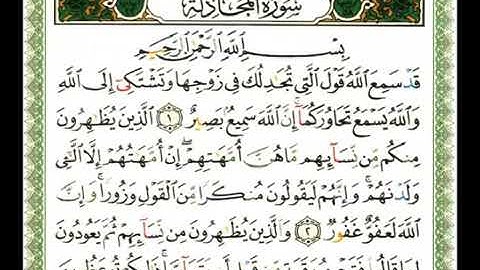 سُورَةُ المُجَادلَة
بِسْمِ ٱللَّهِ ٱلرَّحْمَٰنِ ٱلرَّحِيمِ
قَدْ سَمِعَ ٱللَّهُ قَوْلَ ٱلَّتِى تُجَٰدِلُكَ فِى زَوْجِهَا وَتَشْتَكِىٓ إِلَى ٱللَّهِ
وَٱللَّهُ يَسْمَعُ تَحَاوُرَكُمَآ ۚ إِنَّ ٱللَّهَ سَمِيعٌۢ بَصِيرٌ ١ ٱلَّذِينَ يُظَٰهِرُونَ
مِنكُم مِّن نِّسَآئِهِم مَّا هُنَّ أُمَّهَٰتِهِمْ ۖ إِنْ أُمَّهَٰتُهُمْ إِلَّا ٱلَّٰٓـِٔى
وَلَدْنَهُمْ ۚ وَإِنَّهُمْ لَيَقُولُونَ مُنكَرًا مِّنَ ٱلْقَوْلِ وَزُورًا ۚ وَإِنَّ
ٱللَّهَ لَعَفُوٌّ غَفُورٌ ٢ وَٱلَّذِينَ يُظَٰهِرُونَ مِن نِّسَآئِهِمْ ثُمَّ يَعُودُونَ